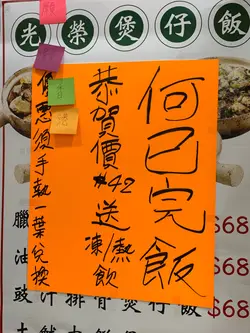 光榮煲仔飯
何已完飯
恭賀價$42送凍/熱飲
惠須手執一葉兌換
臘 $68
油 $68
豉汁排骨煲仔飯 $68